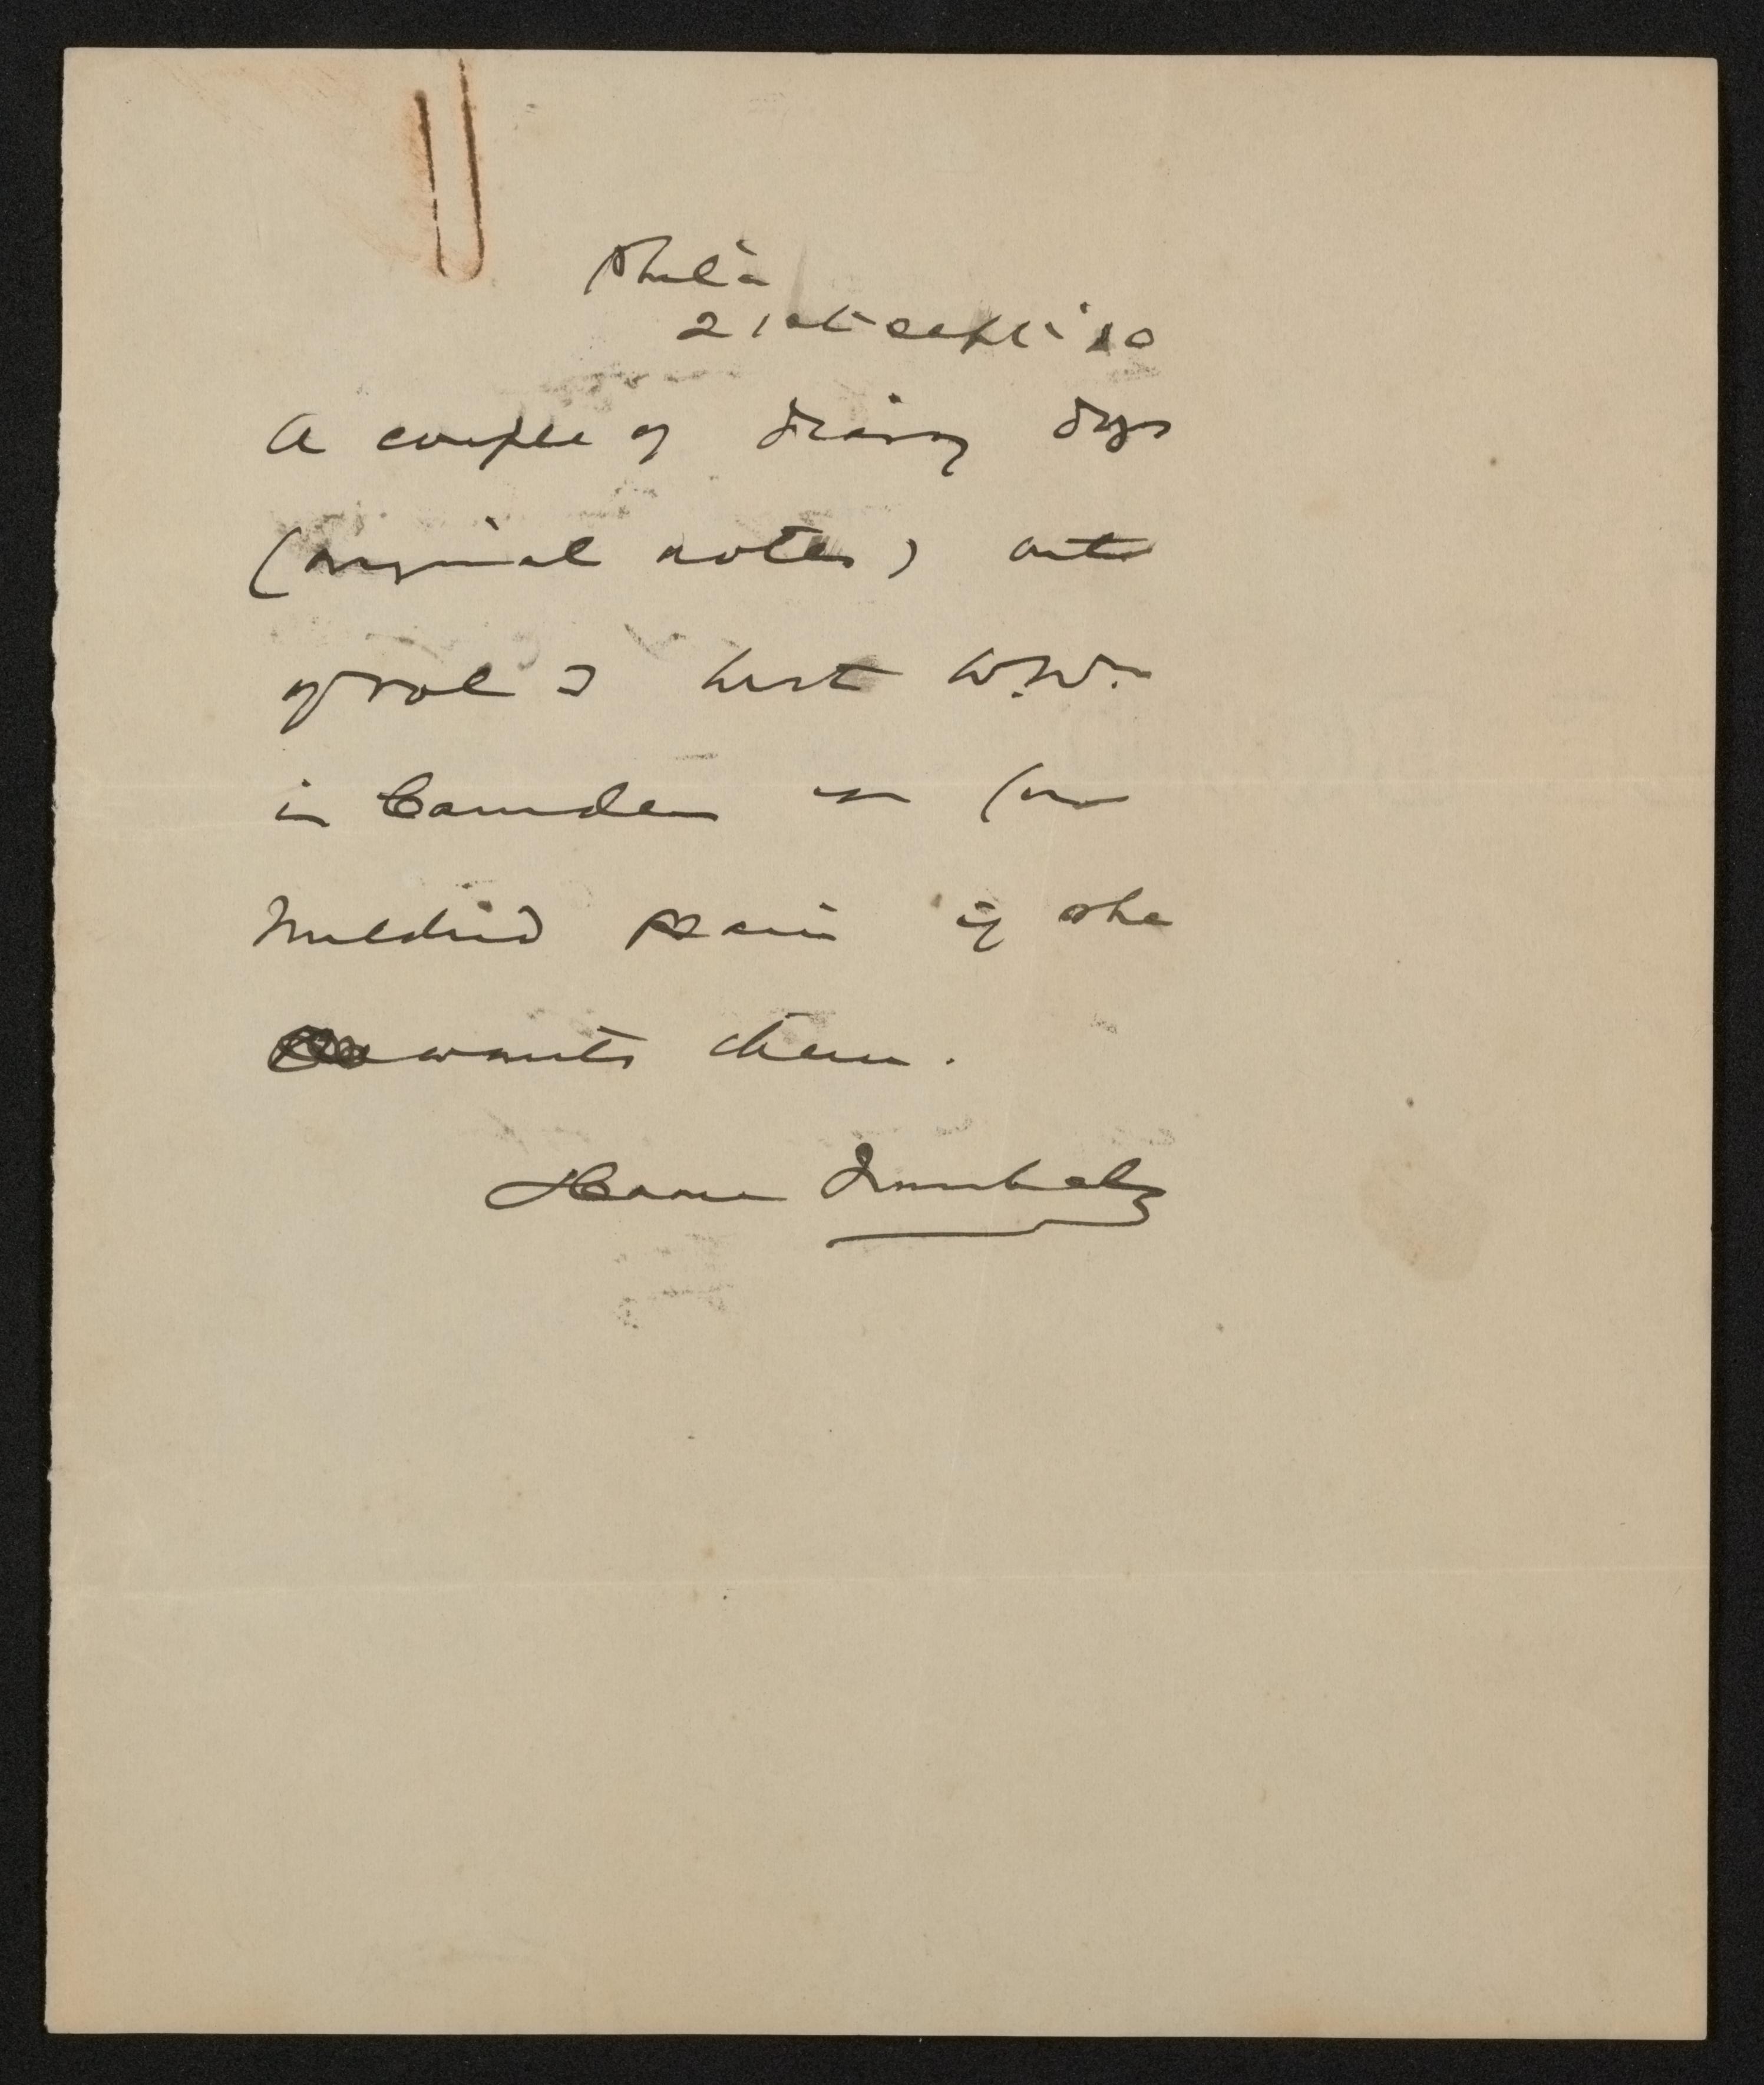 Phila
21st Sept '10
A couple of diary days
(original notes) out
of vol with W.W.
in Camden for
Mildred Bain if she
wants them.
Horace Traubel